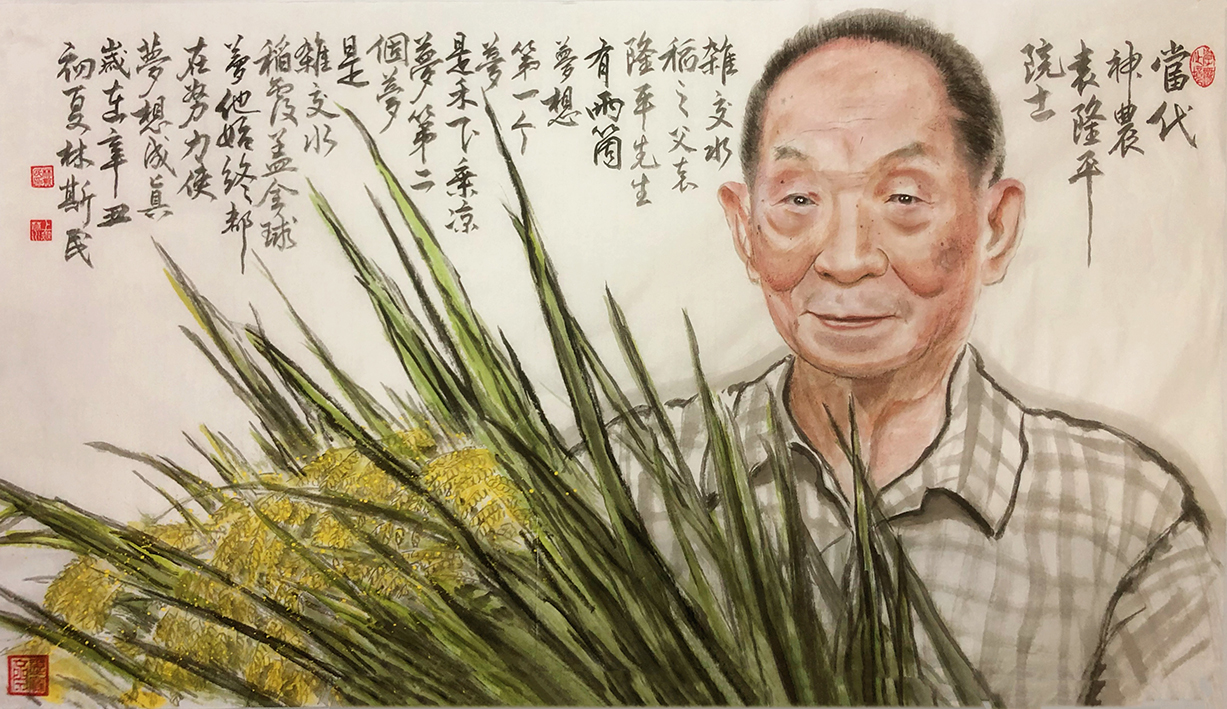 當代
神農
袁隆平
院士
雜交水
稻之父袁
隆平先生
有兩箇
夢想
第一个
夢
是禾下乘凉
夢第二
個夢
是
雜交水
稻覆盖全球
夢他始終都
在努力使
夢想成眞
歲在辛丑
初夏林斯民